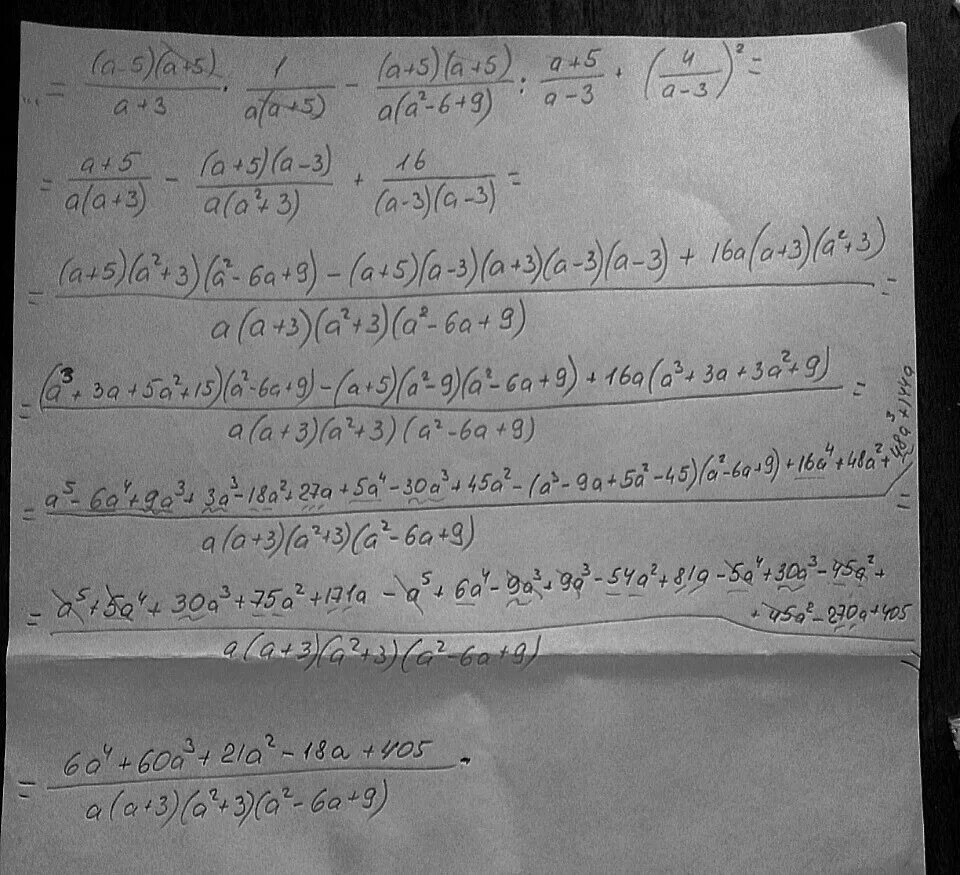 ... = (a-5)(a+5)/(a+3) · 1/(a(a+5)) - (a+5)(a+5)/(a(a²-6+9)) : (a+5)/(a-3) + (4/(a-3))² =
= (a+5)/(a(a+3)) - (a+5)(a-3)/(a(a²+3)) + 16/((a-3)(a-3)) =
= ((a+5)(a²+3)(a²-6a+9) - (a+5)(a-3)(a+3)(a-3)(a-3) + 16a(a+3)(a²+3))/(a(a+3)(a²+3)(a²-6a+9)) =
= ((a³+3a+5a²+15)(a²-6a+9) - (a+5)(a²-9)(a²-6a+9) + 16a(a³+3a+3a²+9))/(a(a+3)(a²+3)(a²-6a+9)) =
= (a⁵-6a⁴+9a³+3a³-18a²+27a+5a⁴-30a³+45a²-(a³-9a+5a²-45)(a²-6a+9)+16a⁴+48a²+48a³+144a)/(a(a+3)(a²+3)(a²-6a+9)) =
= (a⁵+5a⁴+30a³+75a²+171a-a⁵+6a⁴-9a³+9a³-54a²+81a-5a⁴+30a³-45a²+
+45a²-270a+405)/(a(a+3)(a²+3)(a²-6a+9)) =
= (6a⁴+60a³+21a²-18a+405)/(a(a+3)(a²+3)(a²-6a+9)).